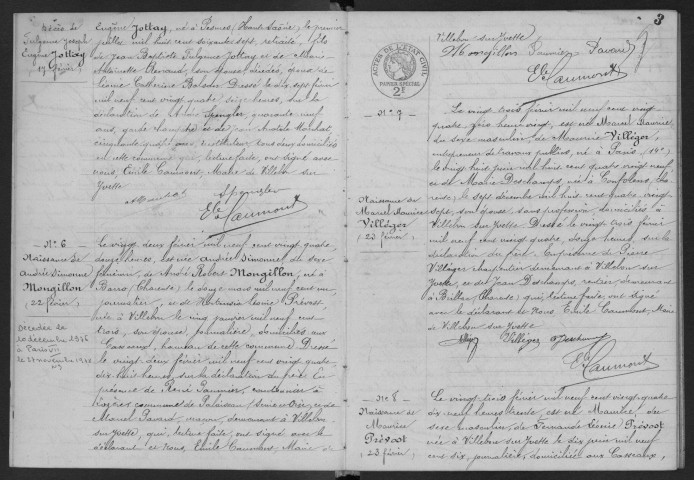 Décès de
Fulgence Joseph
Eugène Jottay
17 février
Eugène Jottay, né à Pesmes (Haute Saône), le premier
juillet mil huit cent soixante sept, retraité, fils
de Jean Baptiste Fulgence Jottay et de Marie
Antoinette Renaud, son épouse, décédés, époux de
Léonie Catherine Dressé le dix sept février
mil neuf cent vingt quatre seize heures, sur la
déclaration de Spengler, quarante neuf
ans, garde champêtre et de
cinquante ans, instituteur, tous deux domiciliés
en cette commune qui, lecture faite, ont signé avec
nous, Emile Caumont, Maire de Villebon sur
Yvette
Spengler
Ele Caumont
N° 6
Naissance de
Andrée Simonne
Mongillon
22 février
Décédée le
10 décembre 1976
à Paris
Le vingt deux février mil neuf cent vingt quatre
douze heures, est née Andrée Simonne du sexe
féminin, de André Robert Mongillon, né à
Barro, Charente, le douze mars mil neuf cent un
journalier, et de Hortensia Léonie Prévost
née à Villebon le cinq janvier mil neuf cent
trois, son épouse, journalière, domiciliés aux
Casseaux, hameau de cette commune Dressé
le vingt deux février mil neuf cent vingt quatre
dix huit heures, sur la déclaration du père. En
présence de René Paumier, cantonnier à
commune de Palaiseau (Seine et Oise), et de
Marcel Pavard, maçon, demeurant à Villebon
sur Yvette, qui, lecture faite ont signé avec le
déclarant et Nous, Emile Caumont, Maire de
3
Villebon sur Yvette
Mongillon Paumier Pavard
Ele Caumont
ACTES DE L'ETAT CIVIL
PAPIER SPECIAL
2F
N° 7
Naissance de
Marcel Maurice
Villéger
23 février
Le vingt trois février mil neuf cent vingt
quatre, heures vingt, est né Marcel Maurice
du sexe masculin, de Maurice Villéger,
entrepreneur de travaux publics, né à Paris (14e)
le huit juin mil huit cent quatre vingt neuf
et de Marie Deschamps, née à Confolens, Cha
rente, le sept décembre mil huit cent quatre vingt
sept, son épouse, sans profession, domiciliés à
Villebon sur Yvette. Dressé le vingt trois février
mil neuf cent vingt quatre, douze heures, sur la
déclaration du père. En présence de Pierre
Villéger charpentier demeurant à Villebon sur
Yvette, et de Jean Deschamps, rentier demeurant
à Brillac, Charente, qui, lecture faite, ont signé
avec le déclarant et Nous, Emile Caumont, Maire
de Villebon sur Yvette
Villéger Deschamps
Ele Caumont
N° 8
Naissance de
Maurice
Prévost
23 février
Le vingt trois février mil neuf cent vingt quatre
dix neuf heures trente, est né Maurice, du
sexe masculin, de Fernande Prévost
née à Villebon sur Yvette le dix juin mil neuf
cent six, journalière, domiciliée aux Casseaux,